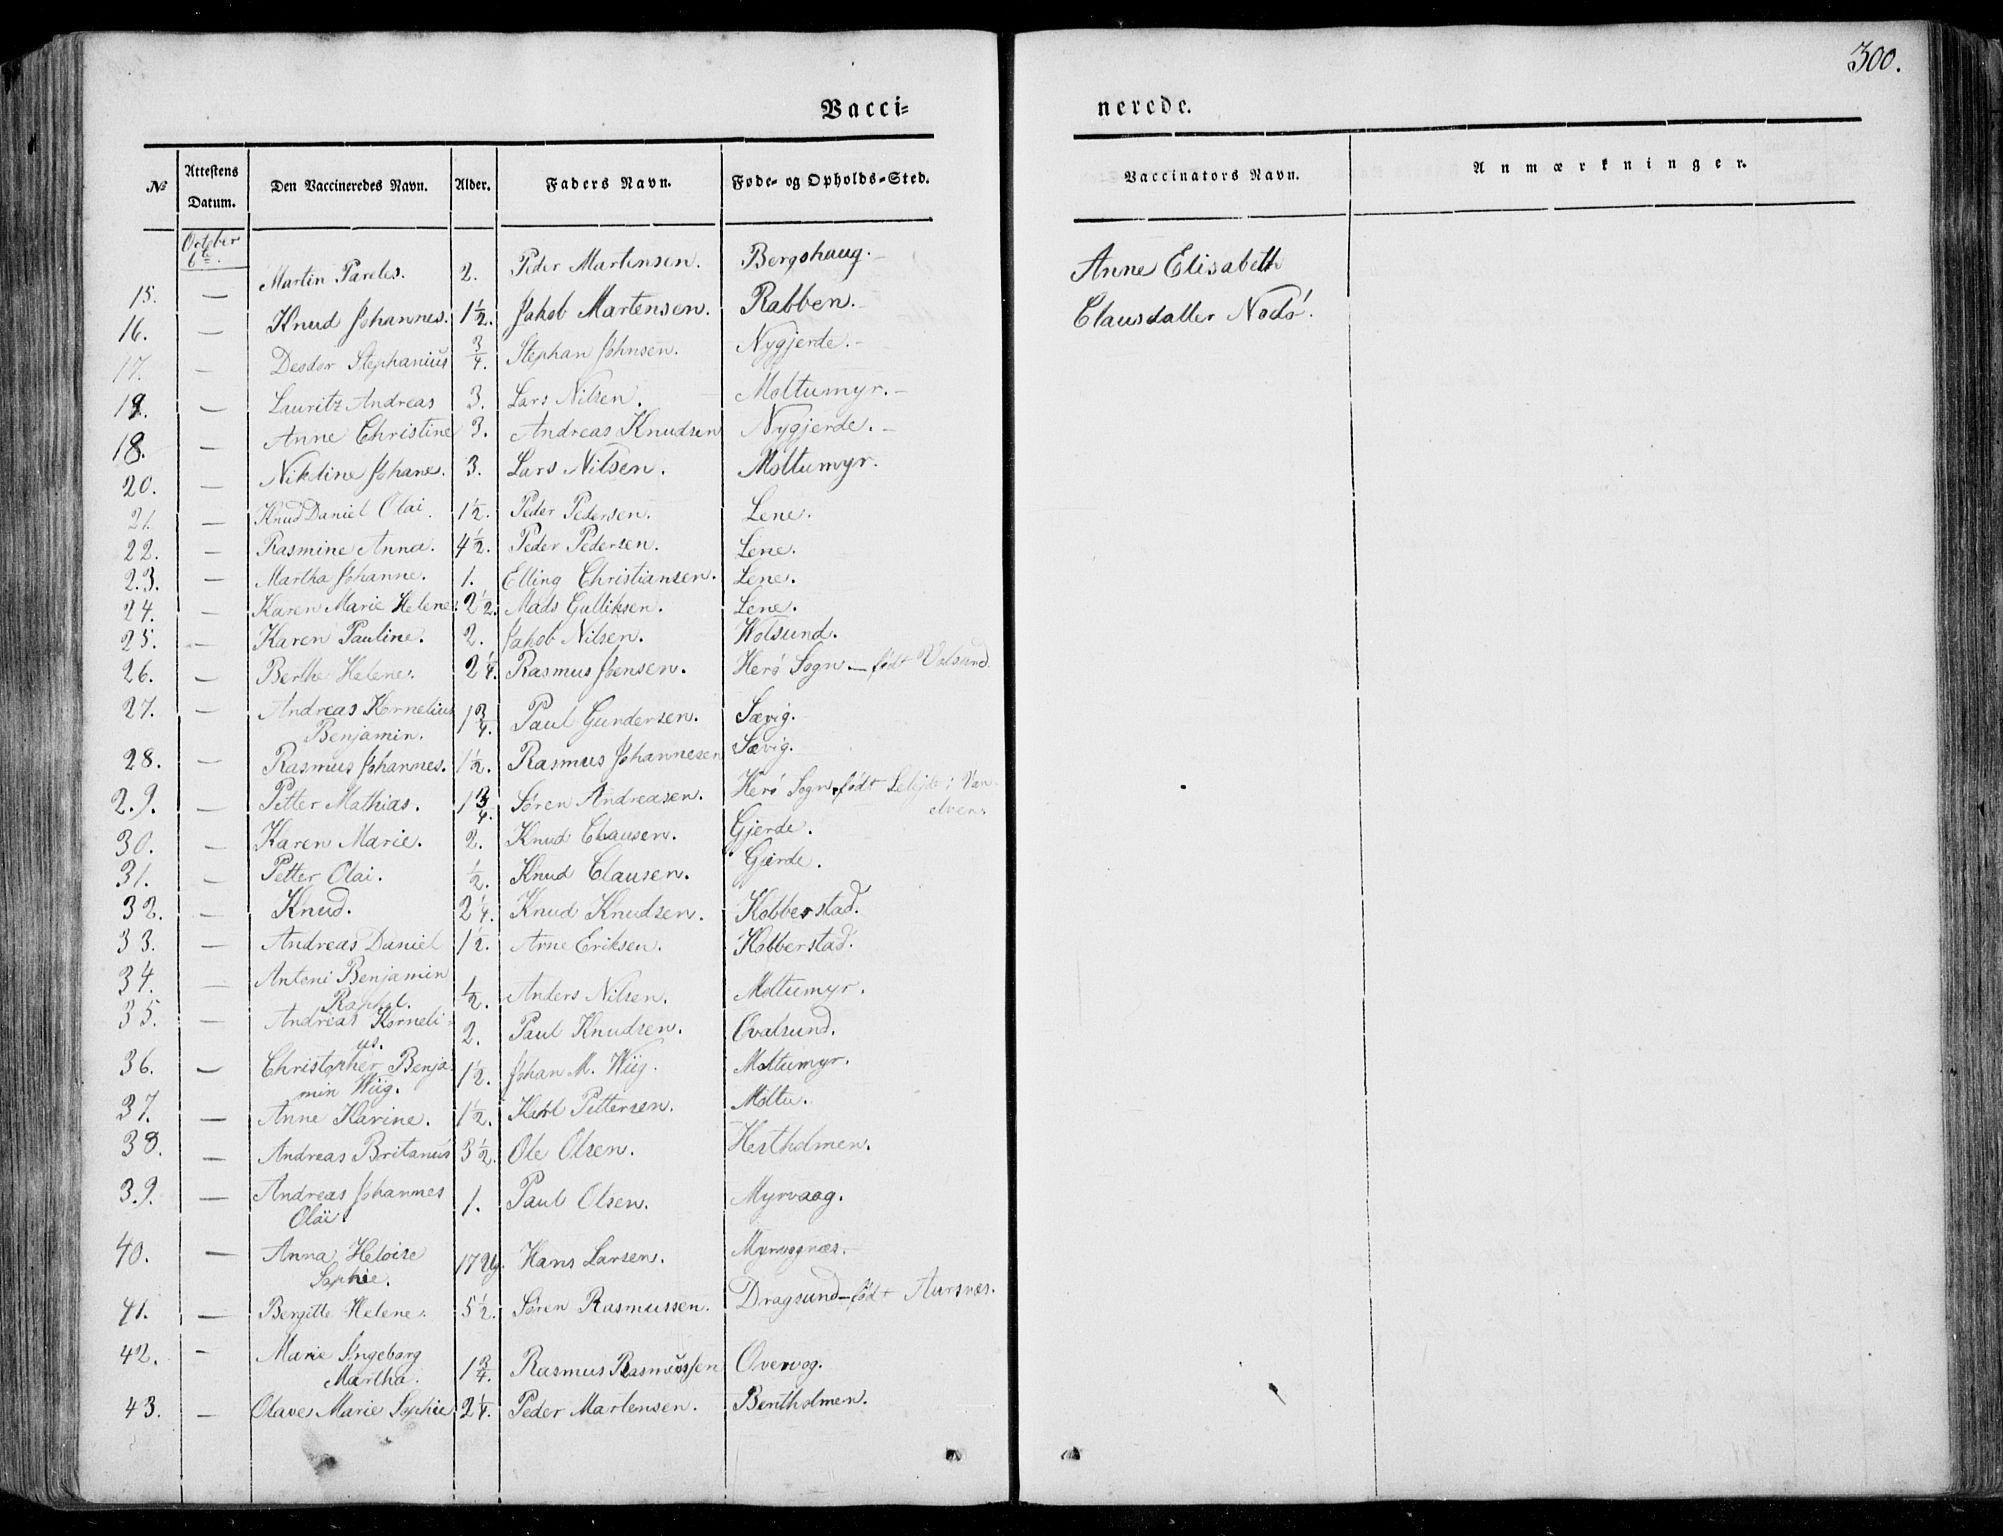 300.
Vacci=
nerede.
№ Attestens Datum. Den Vaccineredes Navn. Alder. Faders Navn. Føde= og Opholds=Sted. Vaccinators Navn. Anmærkninger.
October
6te.
15. — Martin Pareles. 2. Peder Martensen. Bergshaug. — Anne Elisabeth
16. — Knud Johannes. 1½. Jakob Martensen. Rabben. — Clausdatter Nodö.
17. — Desdor Stephanius ¾. Stephan Johnsen. Nygjerde. —
19. — Lauritz Andreas 3. Lars Nilsen. Moltumyr. —
18. — Anne Christine 3. Andreas Knudsen Nygjerde. —
20. — Nikoline Johane. 3. Lars Nilsen. Moltumyr.
21. — Knud Daniel Olai. 1½. Peder Pedersen. Lene.
22. — Rasmine Anna. 4½. Peder Pedersen. Lene.
23. — Martha Johanne. 1. Elling Christiansen. Lene.
24. — Karen Marie Helene. 2½. Mads Gulliksen. Lene.
25. — Karen Pauline. 2. Jakob Nilsen. Wolsund.
26. — Berthe Helene. 2¼. Rasmus Jensen. Herö Sogn — født Volsund.
27. — Andreas Kornelius 1¾. Paul Gundersen. Sævig.
Benjamin.
28. — Rasmus Johannes. 1½. Rasmus Johannesen Sævig.
29. — Petter Mathias. 1¾. Søren Andreasen. Herö Sogn, født i Van
elven.
30. — Karen Marie. 2. Knud Clausen. Gjerde.
31. — Petter Olai. ½. Knud Clausen. Gjerde.
32. — Knud. 2¼. Knud Knudsen. Kobberstad.
33. — Andreas Daniel 1½. Arne Eriksen. Kobberstad.
34. — Antoni Benjamin ½. Anders Nilsen. Moltumyr.
Raphel.
35. — Andreas Korneli- 2. Paul Knudsen. Qvalsund.
us.
36. — Christopher Benja- 1½. Johan M. Wiig. Moltumyr.
min Wiig.
37. — Anne Karine. 1½. Karl Pettersen. Moltu.
38. — Andreas Britanus 3½. Ole Olsen. Hestholmen.
39. — Andreas Johannes 1. Paul Olsen. Myrvaag.
Olai.
40. — Anna Heloise Hans Larsen. Myrvognæs.
Sophie.
41. — Bergitte Helene. 5½. Søren Rasmussen. Dragsund — født Aursnes.
42. — Marie Ingeborg 1¾. Rasmus Rasmussen Overvog.
Martha.
43. — Olave Marie Sophie 2¼. Peder Martensen. Bentholmen.